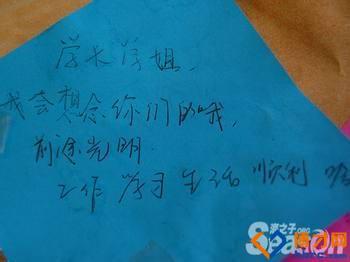 学长学姐，
我会想念你们的哦，
前途光明.
工作 学习 生活 顺利
梦之子.ORG
Season